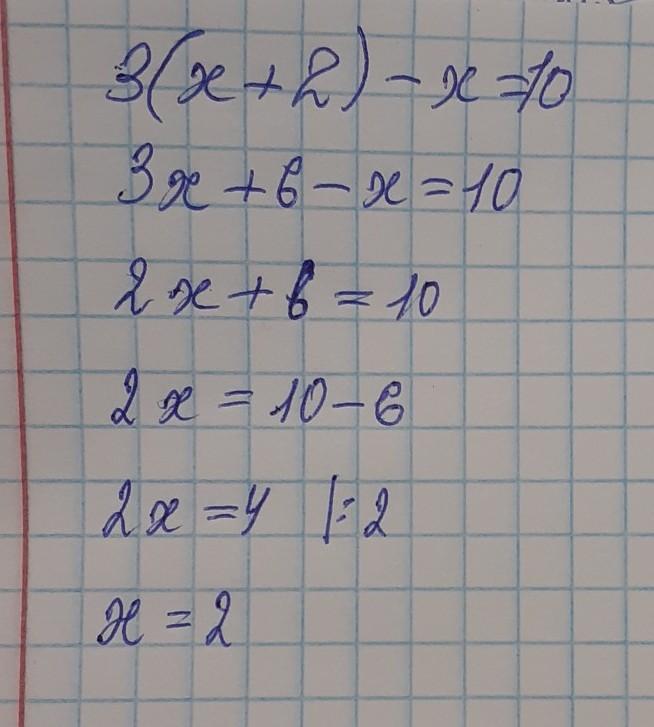 3(x+2)-x=10
3x+6-x=10
2x+6=10
2x=10-6
2x=4 |:2
x=2